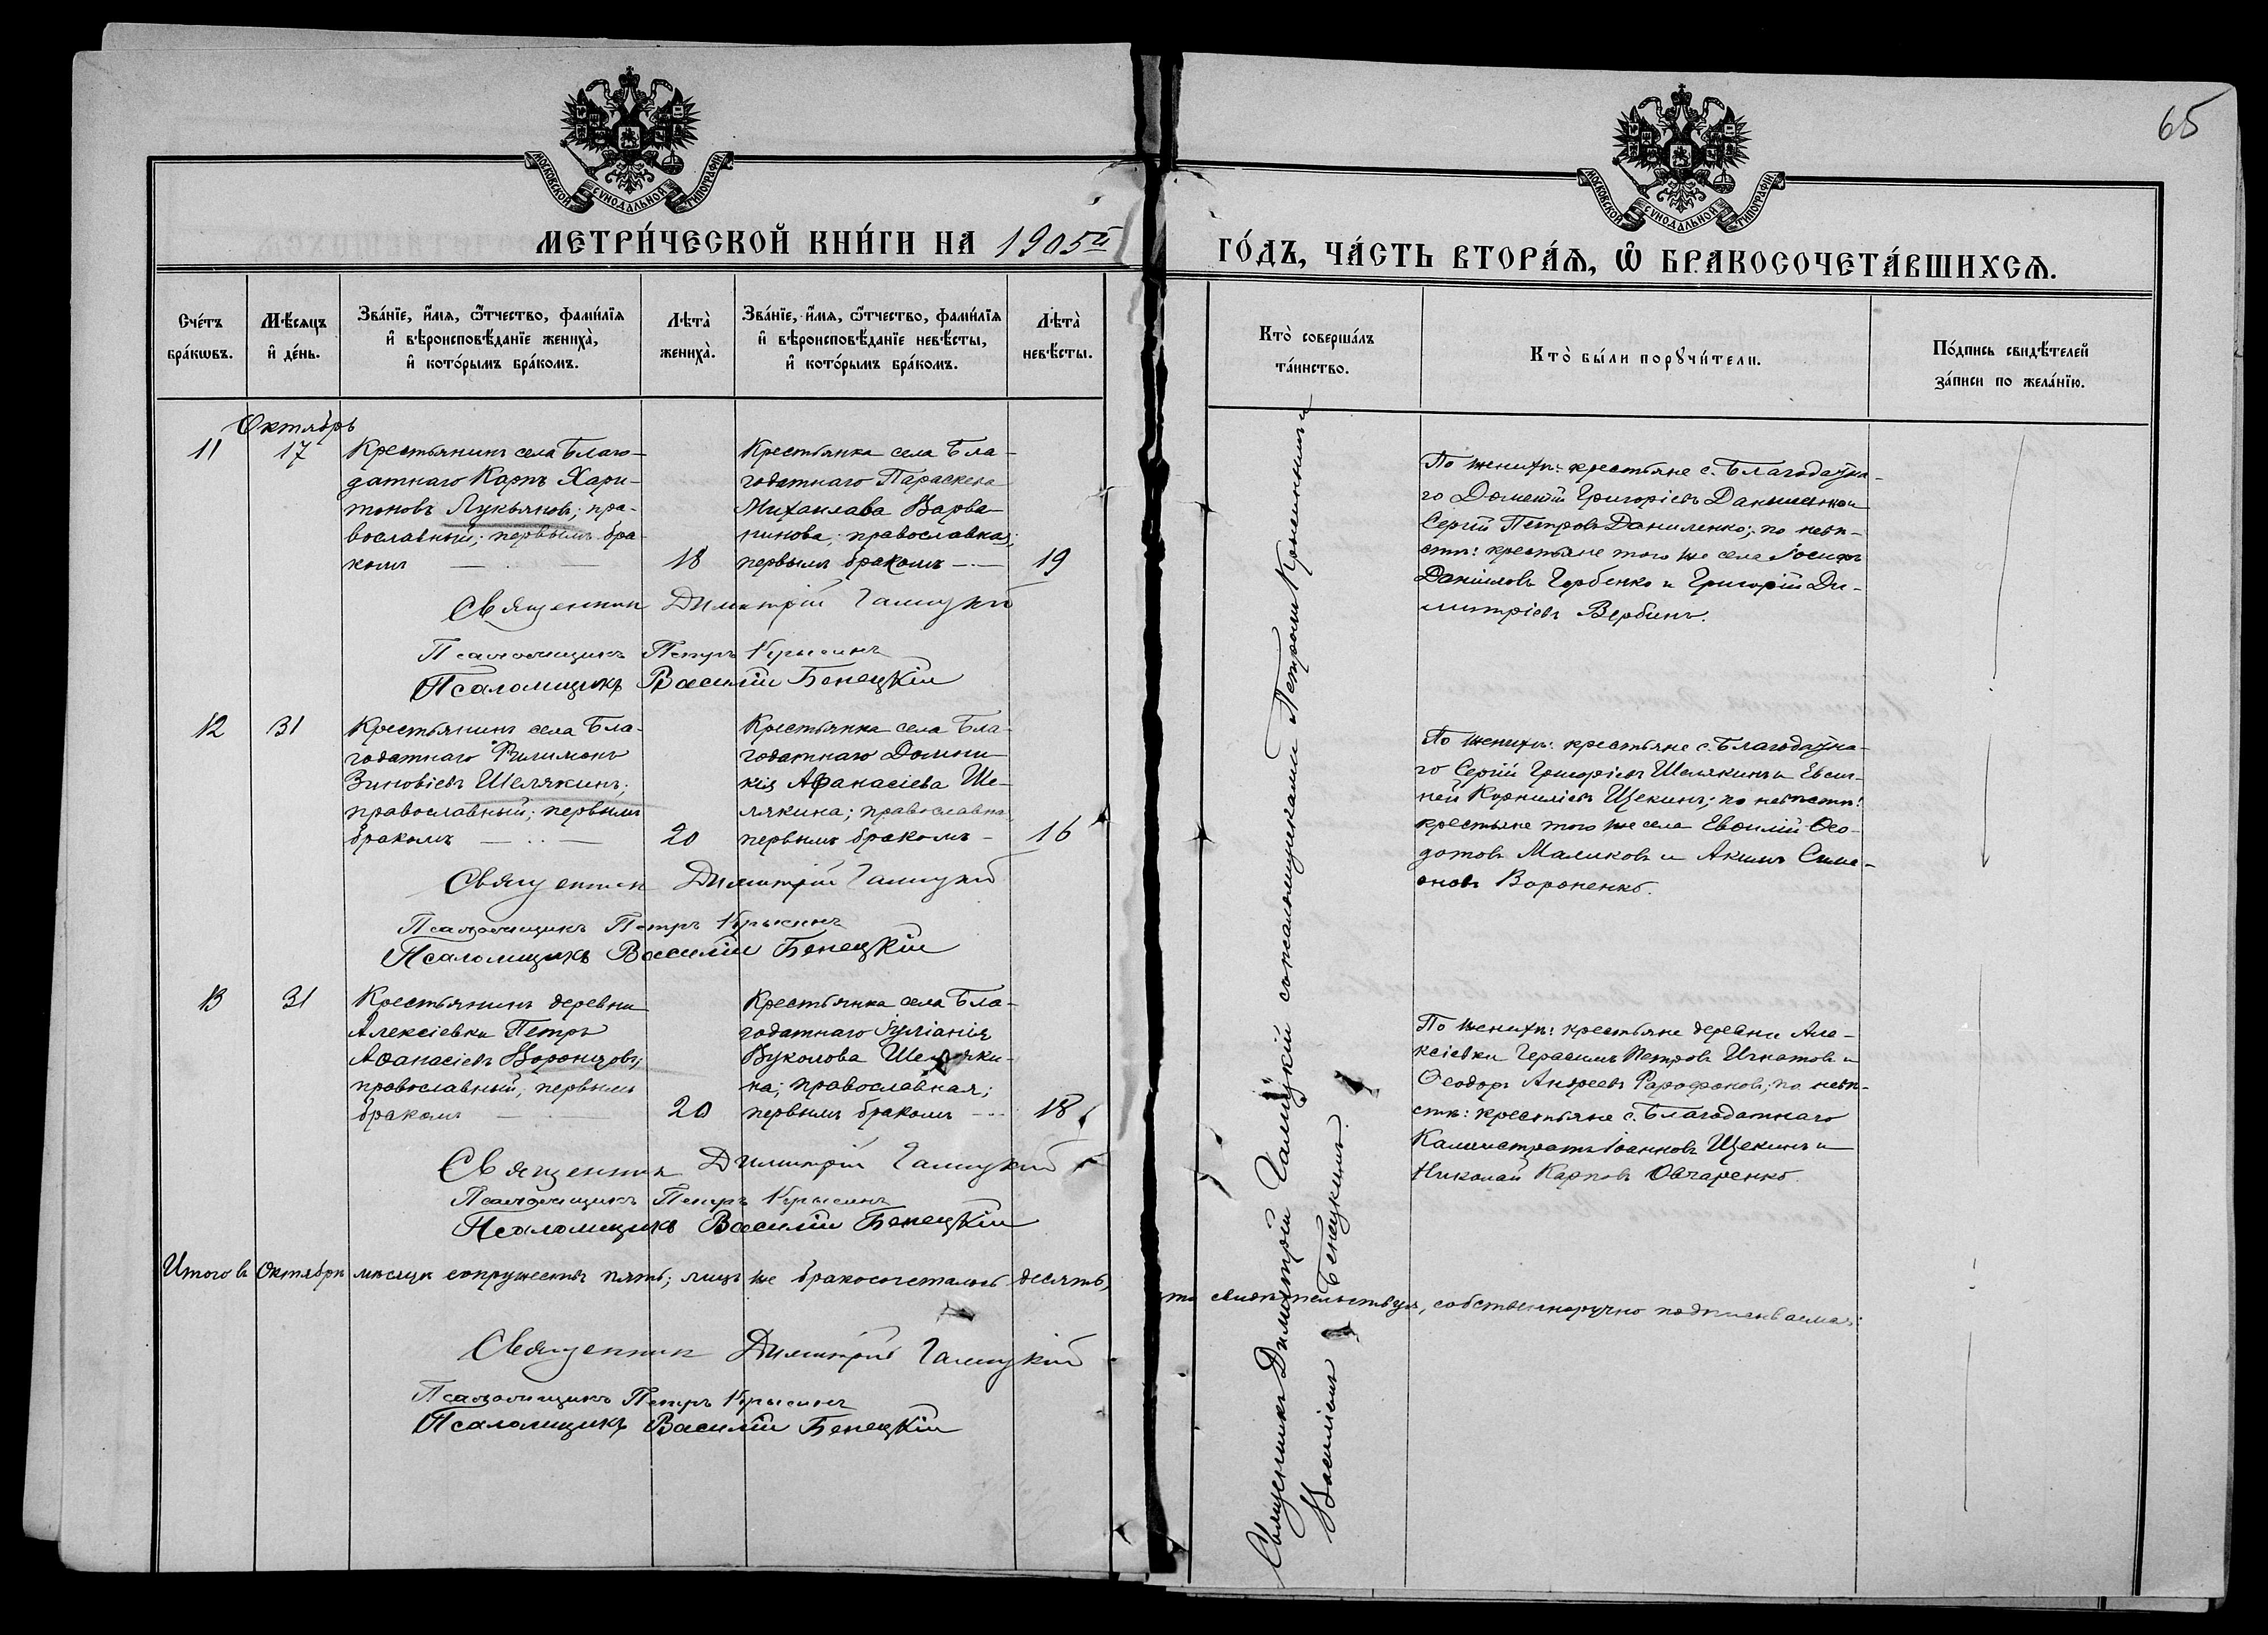 65
МОСКОВСКОЙ СѴНОДАЛЬНОЙ ТИПОГРАФІИ
МОСКОВСКОЙ СѴНОДАЛЬНОЙ ТИПОГРАФІИ
МЕТРИ́ЧЕСКОЙ КНИ́ГИ НА 1905й
ГО́ДЪ, ЧА́СТЬ ВТОРА́Ѧ, Ѡ҆ БРАКОСОЧЕТА́ВШИХСѦ.
Сче́тъ бра́кѡвъ.
Мѣ́сѧцъ и҆ де́нь.
Зва́нїе, и҆́мѧ, ѻ҆́тчество, фами́лїѧ и҆ вѣроисповѣ́данїе жениха̀, и҆ кото́рымъ бра́комъ.
Лѣта̀ жениха̀.
Зва́нїе, и҆́мѧ, ѻ҆́тчество, фами́лїѧ и҆ вѣроисповѣ́данїе невѣ́сты, и҆ кото́рымъ бра́комъ.
Лѣта̀ невѣ́сты.
Кто̀ соверша́лъ та́инство.
Кто̀ бы́ли порꙋчи́тели.
По́дпись свидѣ́телей за́писи по жела́нїю.
Октябрь
11
17
Крестьянинъ села Благо-
датнаго Карпъ Хари-
тоновъ Лукьяновъ; пра-
вославный; первымъ бра
комъ
18
Крестьянка села Бла-
годатнаго Параскева
Михаилова Варва
нинова; православная;
первымъ бракомъ
19
По женихѣ: крестьяне с. Благодатна-
го Дометій Григоріевъ Даниленко и
Сергій Петровъ Даниленко; по невѣ-
стѣ: крестьяне того же села Іосифъ
Даніиловъ Горбенко и Григорій Ди-
митріевъ Вербинъ.
Священникъ Димитрій Галицкій
Псаломщикъ Петръ Крысинъ
Псаломщикъ Василій Бенецкій
12
31
Крестьянинъ села Бла-
годатнаго Филимонъ
Зиновіевъ Шелякинъ;
православный; первымъ
бракомъ
20
Крестьянка села Бла-
годатнаго Домни-
кія Афанасіева Ше-
лякина; православна
первымъ бракомъ
16
По женихѣ: крестьяне с. Благодатна-
го Сергій Григоріевъ Шелякинъ и Евсиг-
ней Корниліевъ Щекинъ; по невѣстѣ:
крестьяне того же села Евфимій Ѳео-
дотовъ Маликовъ и Акимъ Симе-
оновъ Вороненко.
Священникъ Димитрій Галицкій
Псаломщикъ Петръ Крысинъ
Псаломщикъ Василій Бенецкій
13
31
Крестьянинъ деревни
Алексіевки Петръ
Аѳанасіевъ Воронцовъ;
православный; первымъ
бракомъ
20
Крестьянка села Бла-
годатнаго Іуліанія
Вуколова Шеляки-
на; православная;
первымъ бракомъ
18
По женихѣ: крестьяне деревни Але-
ксіевки Герасимъ Петровъ Игнатовъ и
Ѳеодоръ Андреевъ Фарафоновъ; по невѣ-
стѣ: крестьяне с. Благодатнаго
Каллистратъ Іоанновъ Щекинъ и
Николай Карповъ Овчаренко.
Священникъ Димитрій Галицкій
Псаломщикъ Петръ Крысинъ
Псаломщикъ Василій Бенецкій
Итого въ Октябрѣ мѣсяцѣ супружествъ пять; лицъ же бракосочеталось десять,
что свидѣтельствуя, собственноручно подписываемся:
Священникъ Димитрій Галицкій
Псаломщикъ Петръ Крысинъ
Псаломщикъ Василій Бенецкій
Священникъ Димитрій Галицкій со псаломщиками Петромъ Крысинымъ и
Василіемъ Бенецкимъ.